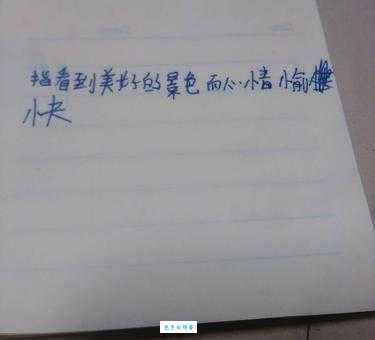 指看到美好的景色而心情愉
快